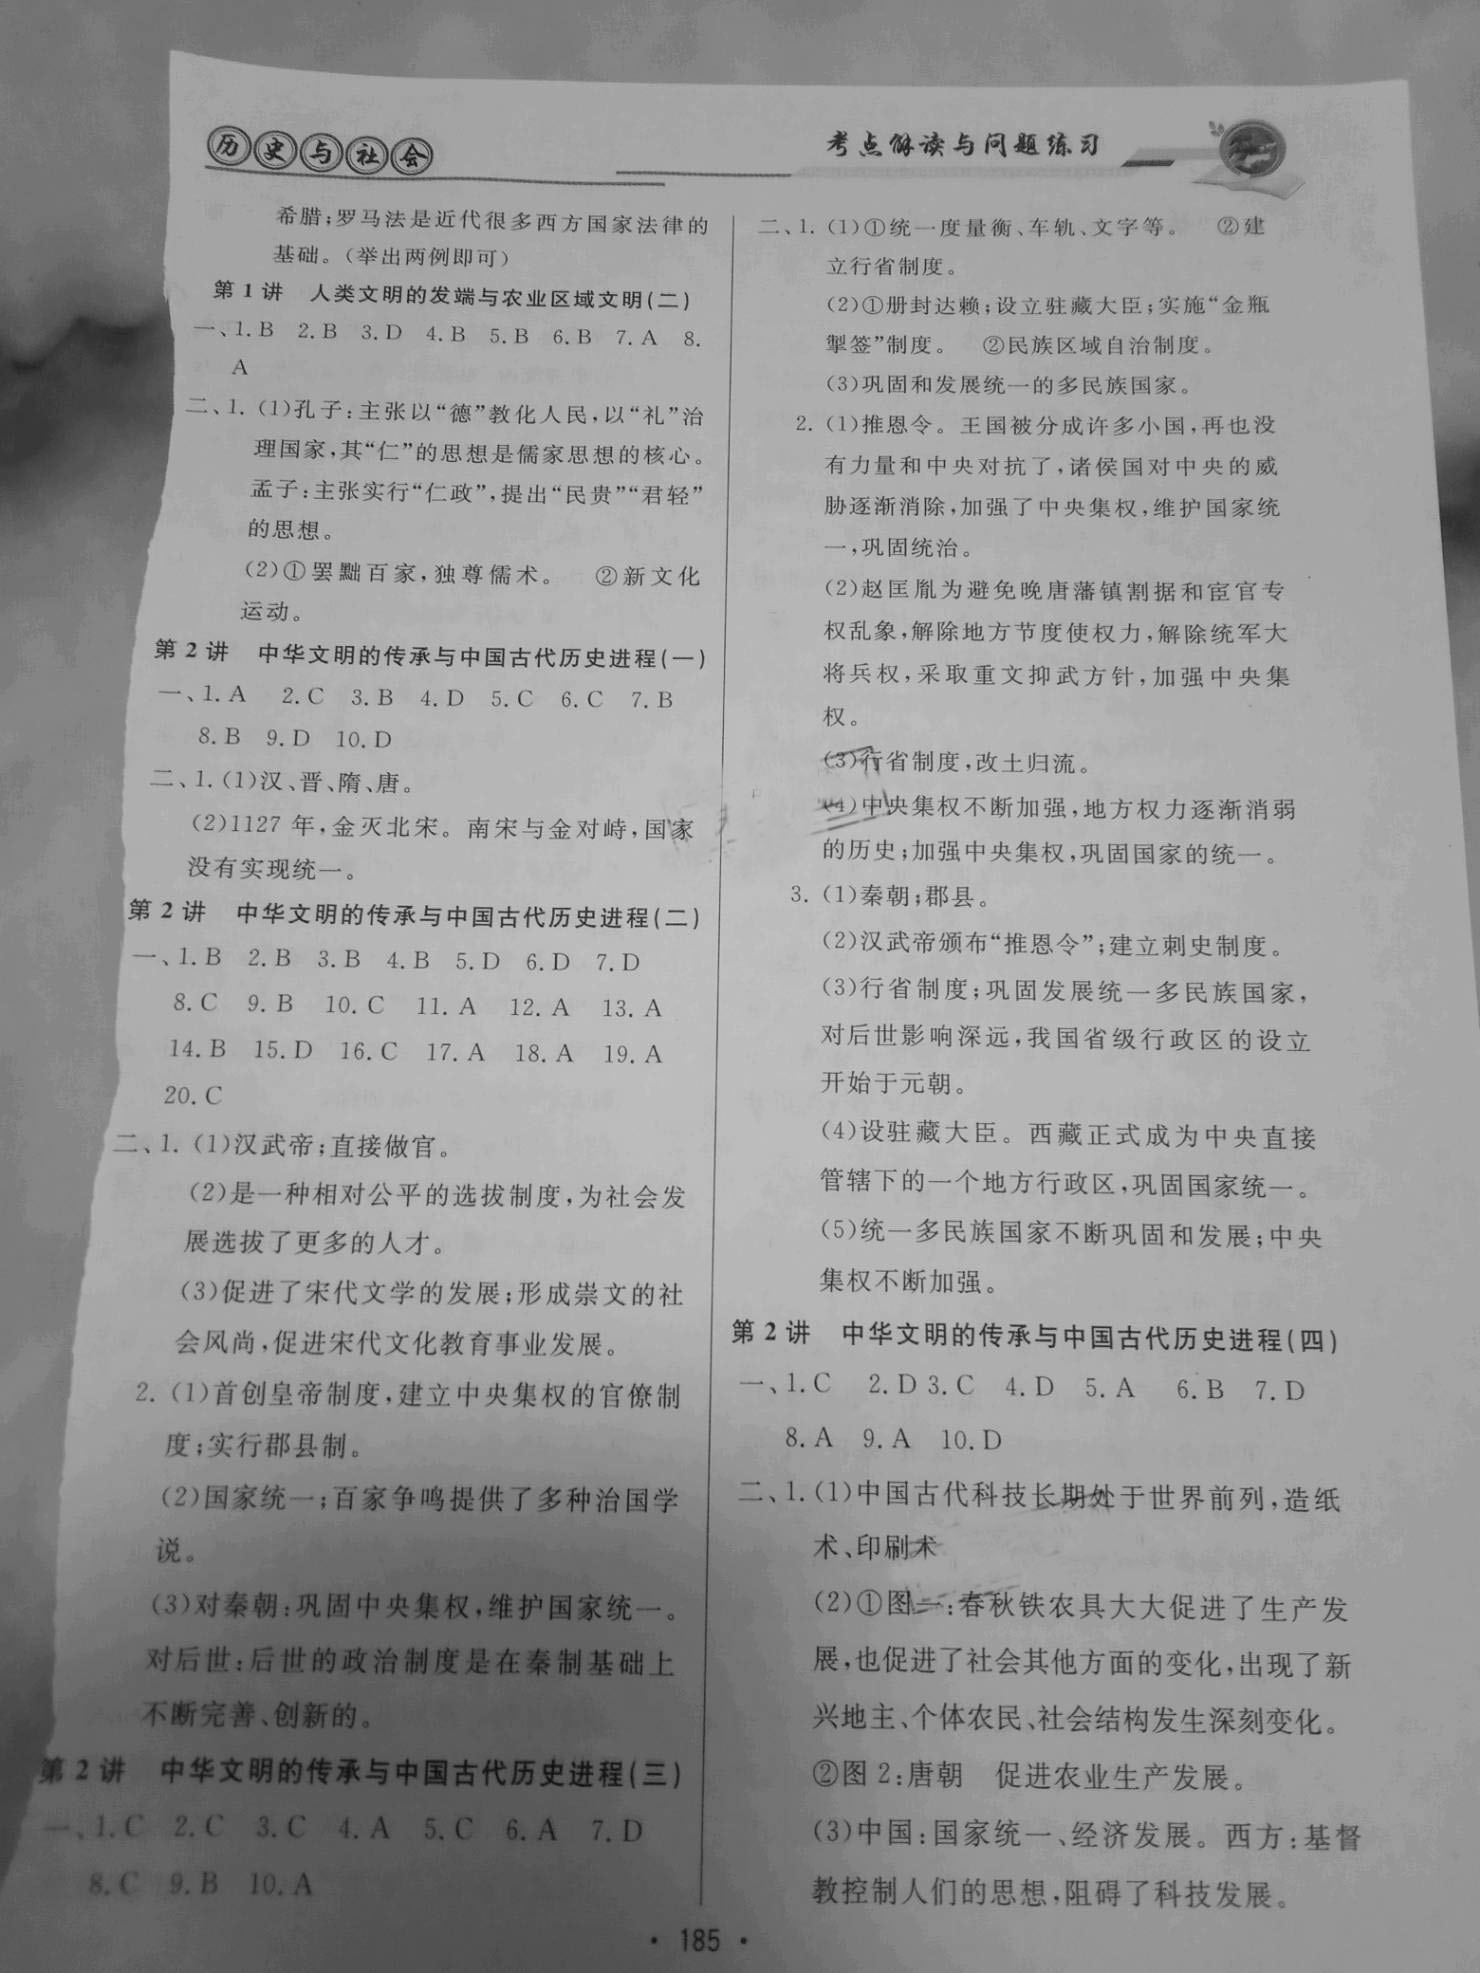 历史与社会
考点解读与问题练习
希腊;罗马法是近代很多西方国家法律的
基础。(举出两例即可)
第1讲 人类文明的发端与农业区域文明(二)
一、1.B 2.B 3.D 4.B 5.B 6.B 7.A 8.
A
二、1.(1)孔子:主张以“德”教化人民,以“礼”治
理国家,其“仁”的思想是儒家思想的核心。
孟子:主张实行“仁政”,提出“民贵”“君轻”
的思想。
(2)①罢黜百家,独尊儒术。 ②新文化
运动。
第2讲 中华文明的传承与中国古代历史进程(一)
一、1.A 2.C 3.B 4.D 5.C 6.C 7.B
8.B 9.D 10.D
二、1.(1)汉、晋、隋、唐。
(2)1127年,金灭北宋。南宋与金对峙,国家
没有实现统一。
第2讲 中华文明的传承与中国古代历史进程(二)
一、1.B 2.B 3.B 4.B 5.D 6.D 7.D
8.C 9.B 10.C 11.A 12.A 13.A
14.B 15.D 16.C 17.A 18.A 19.A
20.C
二、1.(1)汉武帝;直接做官。
(2)是一种相对公平的选拔制度,为社会发
展选拔了更多的人才。
(3)促进了宋代文学的发展;形成崇文的社
会风尚,促进宋代文化教育事业发展。
2.(1)首创皇帝制度,建立中央集权的官僚制
度;实行郡县制。
(2)国家统一;百家争鸣提供了多种治国学
说。
(3)对秦朝:巩固中央集权,维护国家统一。
对后世:后世的政治制度是在秦制基础上
不断完善、创新的。
第2讲 中华文明的传承与中国古代历史进程(三)
一、1.C 2.C 3.C 4.A 5.C 6.A 7.D
8.C 9.B 10.A
二、1.(1)①统一度量衡、车轨、文字等。 ②建
立行省制度。
(2)①册封达赖;设立驻藏大臣;实施“金瓶
掣签”制度。 ②民族区域自治制度。
(3)巩固和发展统一的多民族国家。
2.(1)推恩令。王国被分成许多小国,再也没
有力量和中央对抗了,诸侯国对中央的威
胁逐渐消除,加强了中央集权,维护国家统
一,巩固统治。
(2)赵匡胤为避免晚唐藩镇割据和宦官专
权乱象,解除地方节度使权力,解除统军大
将兵权,采取重文抑武方针,加强中央集
权。
(3)行省制度,改土归流。
(4)中央集权不断加强,地方权力逐渐消弱
的历史;加强中央集权,巩固国家的统一。
3.(1)秦朝;郡县。
(2)汉武帝颁布“推恩令”;建立刺史制度。
(3)行省制度;巩固发展统一多民族国家,
对后世影响深远,我国省级行政区的设立
开始于元朝。
(4)设驻藏大臣。西藏正式成为中央直接
管辖下的一个地方行政区,巩固国家统一。
(5)统一多民族国家不断巩固和发展;中央
集权不断加强。
第2讲 中华文明的传承与中国古代历史进程(四)
一、1.C 2.D 3.C 4.D 5.A 6.B 7.D
8.A 9.A 10.D
二、1.(1)中国古代科技长期处于世界前列,造纸
术、印刷术
(2)①图一:春秋铁农具大大促进了生产发
展,也促进了社会其他方面的变化,出现了新
兴地主、个体农民、社会结构发生深刻变化。
②图2:唐朝 促进农业生产发展。
(3)中国:国家统一、经济发展。西方:基督
教控制人们的思想,阻碍了科技发展。
·185·